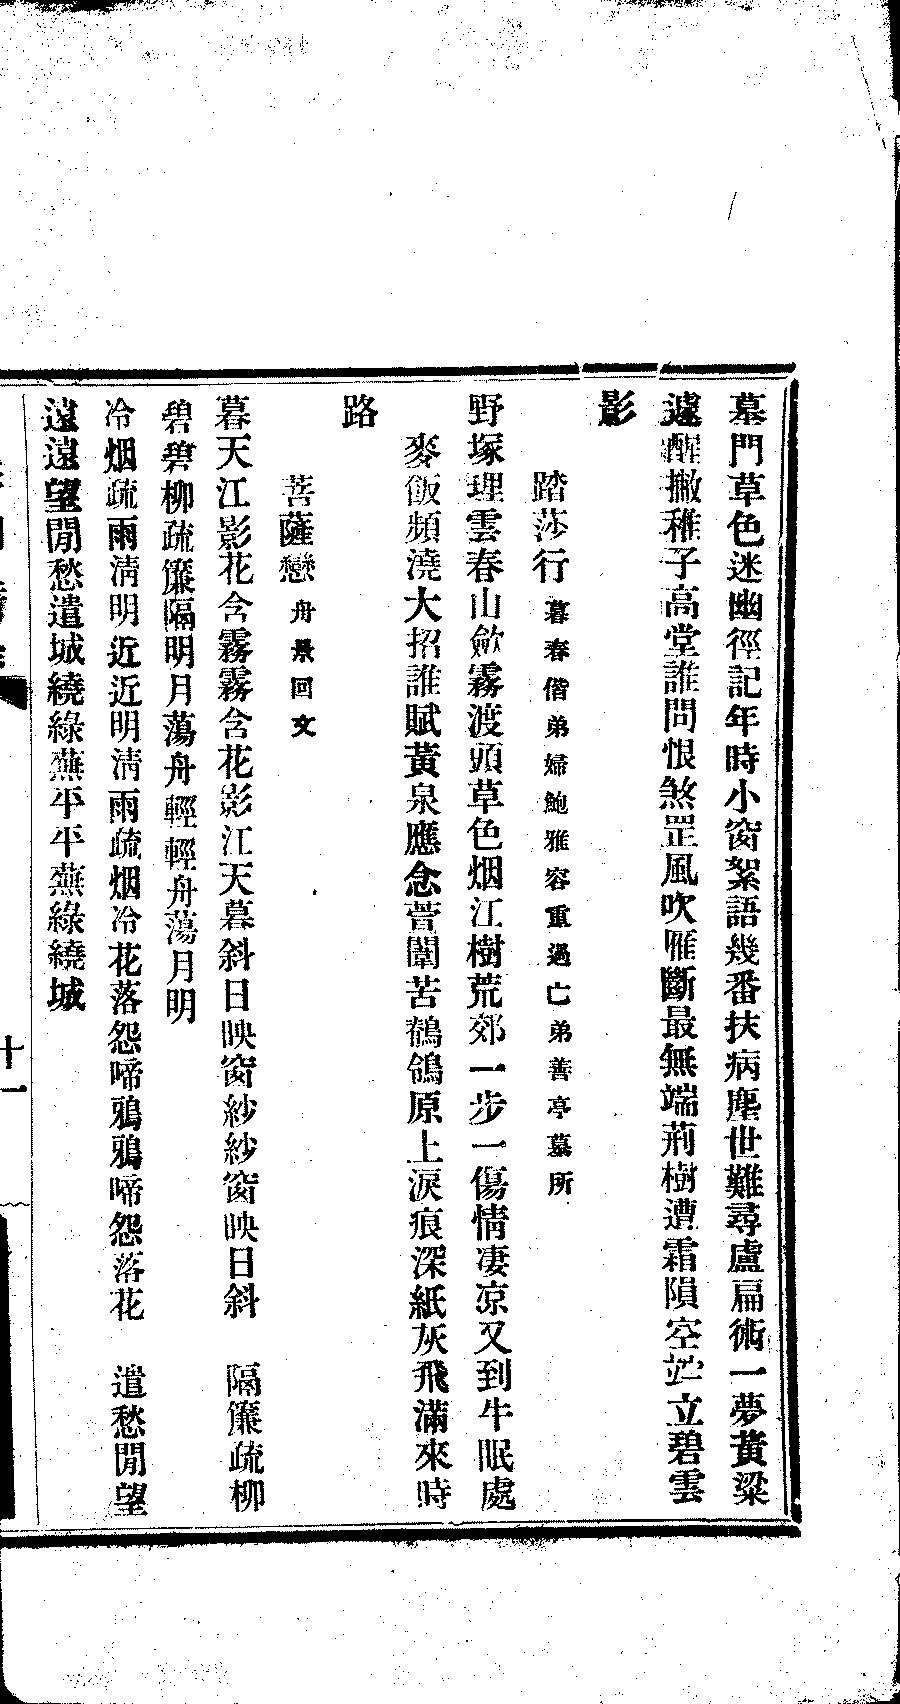 墓門草色迷幽徑記年時小窗絮語幾番扶病塵世難尋盧扁術一夢黃粱
遽醒撇稚子高堂誰問恨煞罡風吹雁斷最無端荊樹遭霜隕空竚立碧雲
影
踏莎行暮春偕弟婦鮑雅容重過亡弟善亭墓所
野塚埋雲春山斂霧渡頭草色烟江樹荒郊一步一傷情凄凉又到牛眠處
麥飯頻澆大招誰賦黃泉應念萱闈苦鶺鴒原上淚痕深紙灰飛滿來時
路
菩薩蠻舟景回文
暮天江影花含霧霧含花影江天暮斜日映窗紗紗窗映日斜　隔簾疏柳
碧碧柳疏簾隔明月蕩舟輕輕舟蕩月明
冷烟疏雨淸明近近明淸雨疏烟冷花落怨啼鴉鴉啼怨落花　遣愁閒望
遠遠望閒愁遣城繞綠蕪平平蕪綠繞城
十一